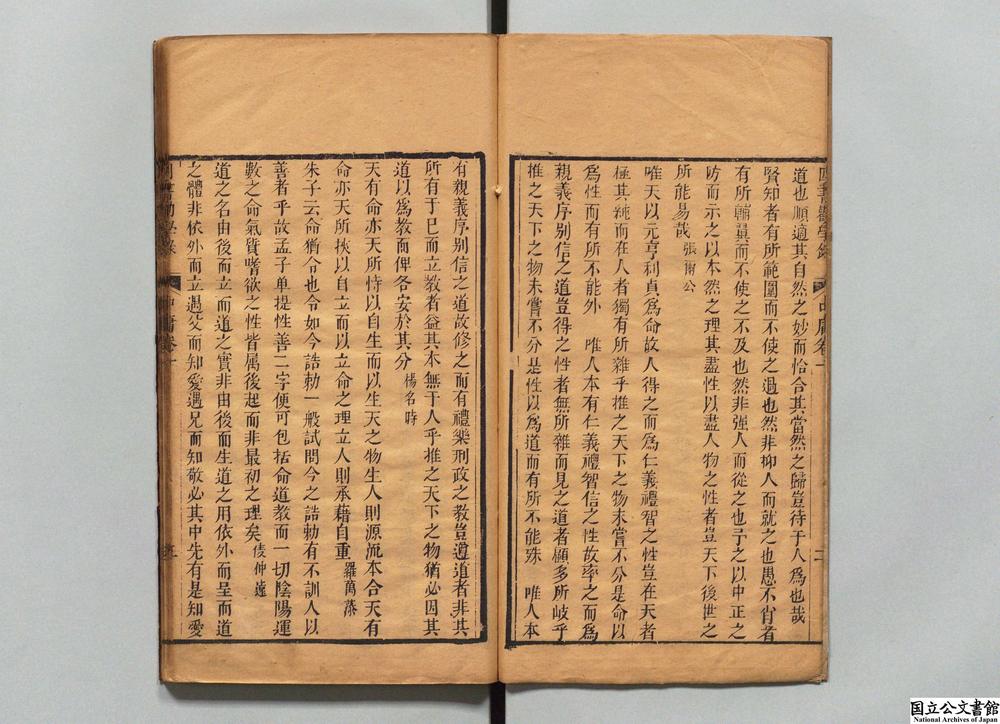 道也順適其自然之妙而恰合其當然之歸豈待于人為也哉
賢知者有所範圍而不使之過也然非抑人而就之也愚不肖者
有所輔翼而不使之不及也然非强人而從之也予之以中正之
防而示之以本然之理其盡性以盡人物之性者豈天下後世之
所能易哉 張甫公
唯天以元亨利貞為命故人得之而為仁義禮智之性豈在天者
極其純而在人者獨有所雜乎推之天下之物未嘗不分是命以
為性而有所不能外 唯人本有仁義禮智信之性故率之而為
親義序别信之道豈得之性者無所雜而見之道者顯多所岐乎
推之天下之物未嘗不分是性以為道而有所不能殊 唯人本
有親義序别信之道故修之而有禮樂刑政之教豈遵道者非其
所有于已而立教者益其本無于人乎推之天下之物猶必因其
道以為教而俾各安於其分 楊名時
天有命亦天所恃以自生而以生天之物生人則源流本合天有
命亦天所挾以自立而以立命之理立人則承藉自重 羅萬藻
朱子云命猶令也令如今誥勅一般試問今之誥勅有不訓人以
善者乎故孟子单提性善二字便可包括命道教而一切陰陽運
數之命氣質嗜欲之性皆属後起而非最初之理矣
道之名由後而立而道之實非由後而生道之用依外而呈而道
之體非依外而立遇父而知愛遇兄而知敬必其中先有是知愛
四書勸學錄
中庸卷一
國立公文書館
National Archives of Japan